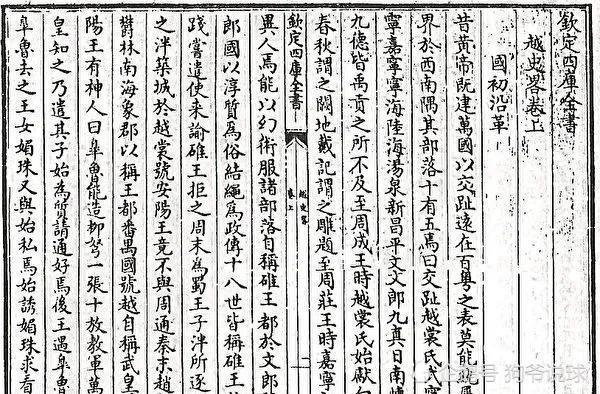 欽定四庫全書
越史畧卷上
國初沿革
昔黄帝既建萬國以交趾遠在百粤之表莫能統
界於西南隅其部落十有五焉曰交趾越裳氏武寧
寧嘉寧寧海陸海湯泉新昌平文文郎九真日南
九德皆禹貢之所不及至周成王時越裳氏始獻
春秋謂之闕地戴記謂之雕題至周莊王時嘉寧
欽定四庫全書
越史畧
卷上
異人焉能以幻術服諸部落自稱碓王都於文郎
郎國以淳質為俗結繩為政傳十八世皆稱碓王
踐嘗遣使来諭碓王拒之周末為蜀王子泮所逐
之泮築城於越裳號安陽王竟不與周通秦末趙
欝林南海象郡以稱王都番禺國號越自稱武皇
陽王有神人曰臯魯能造柳弩一張十放教軍萬
皇知之乃遣其子始為質請通好焉後王遇臯魯
臯魯去之王女媚珠又與始私焉始誘媚珠求看
号 狗爷说球